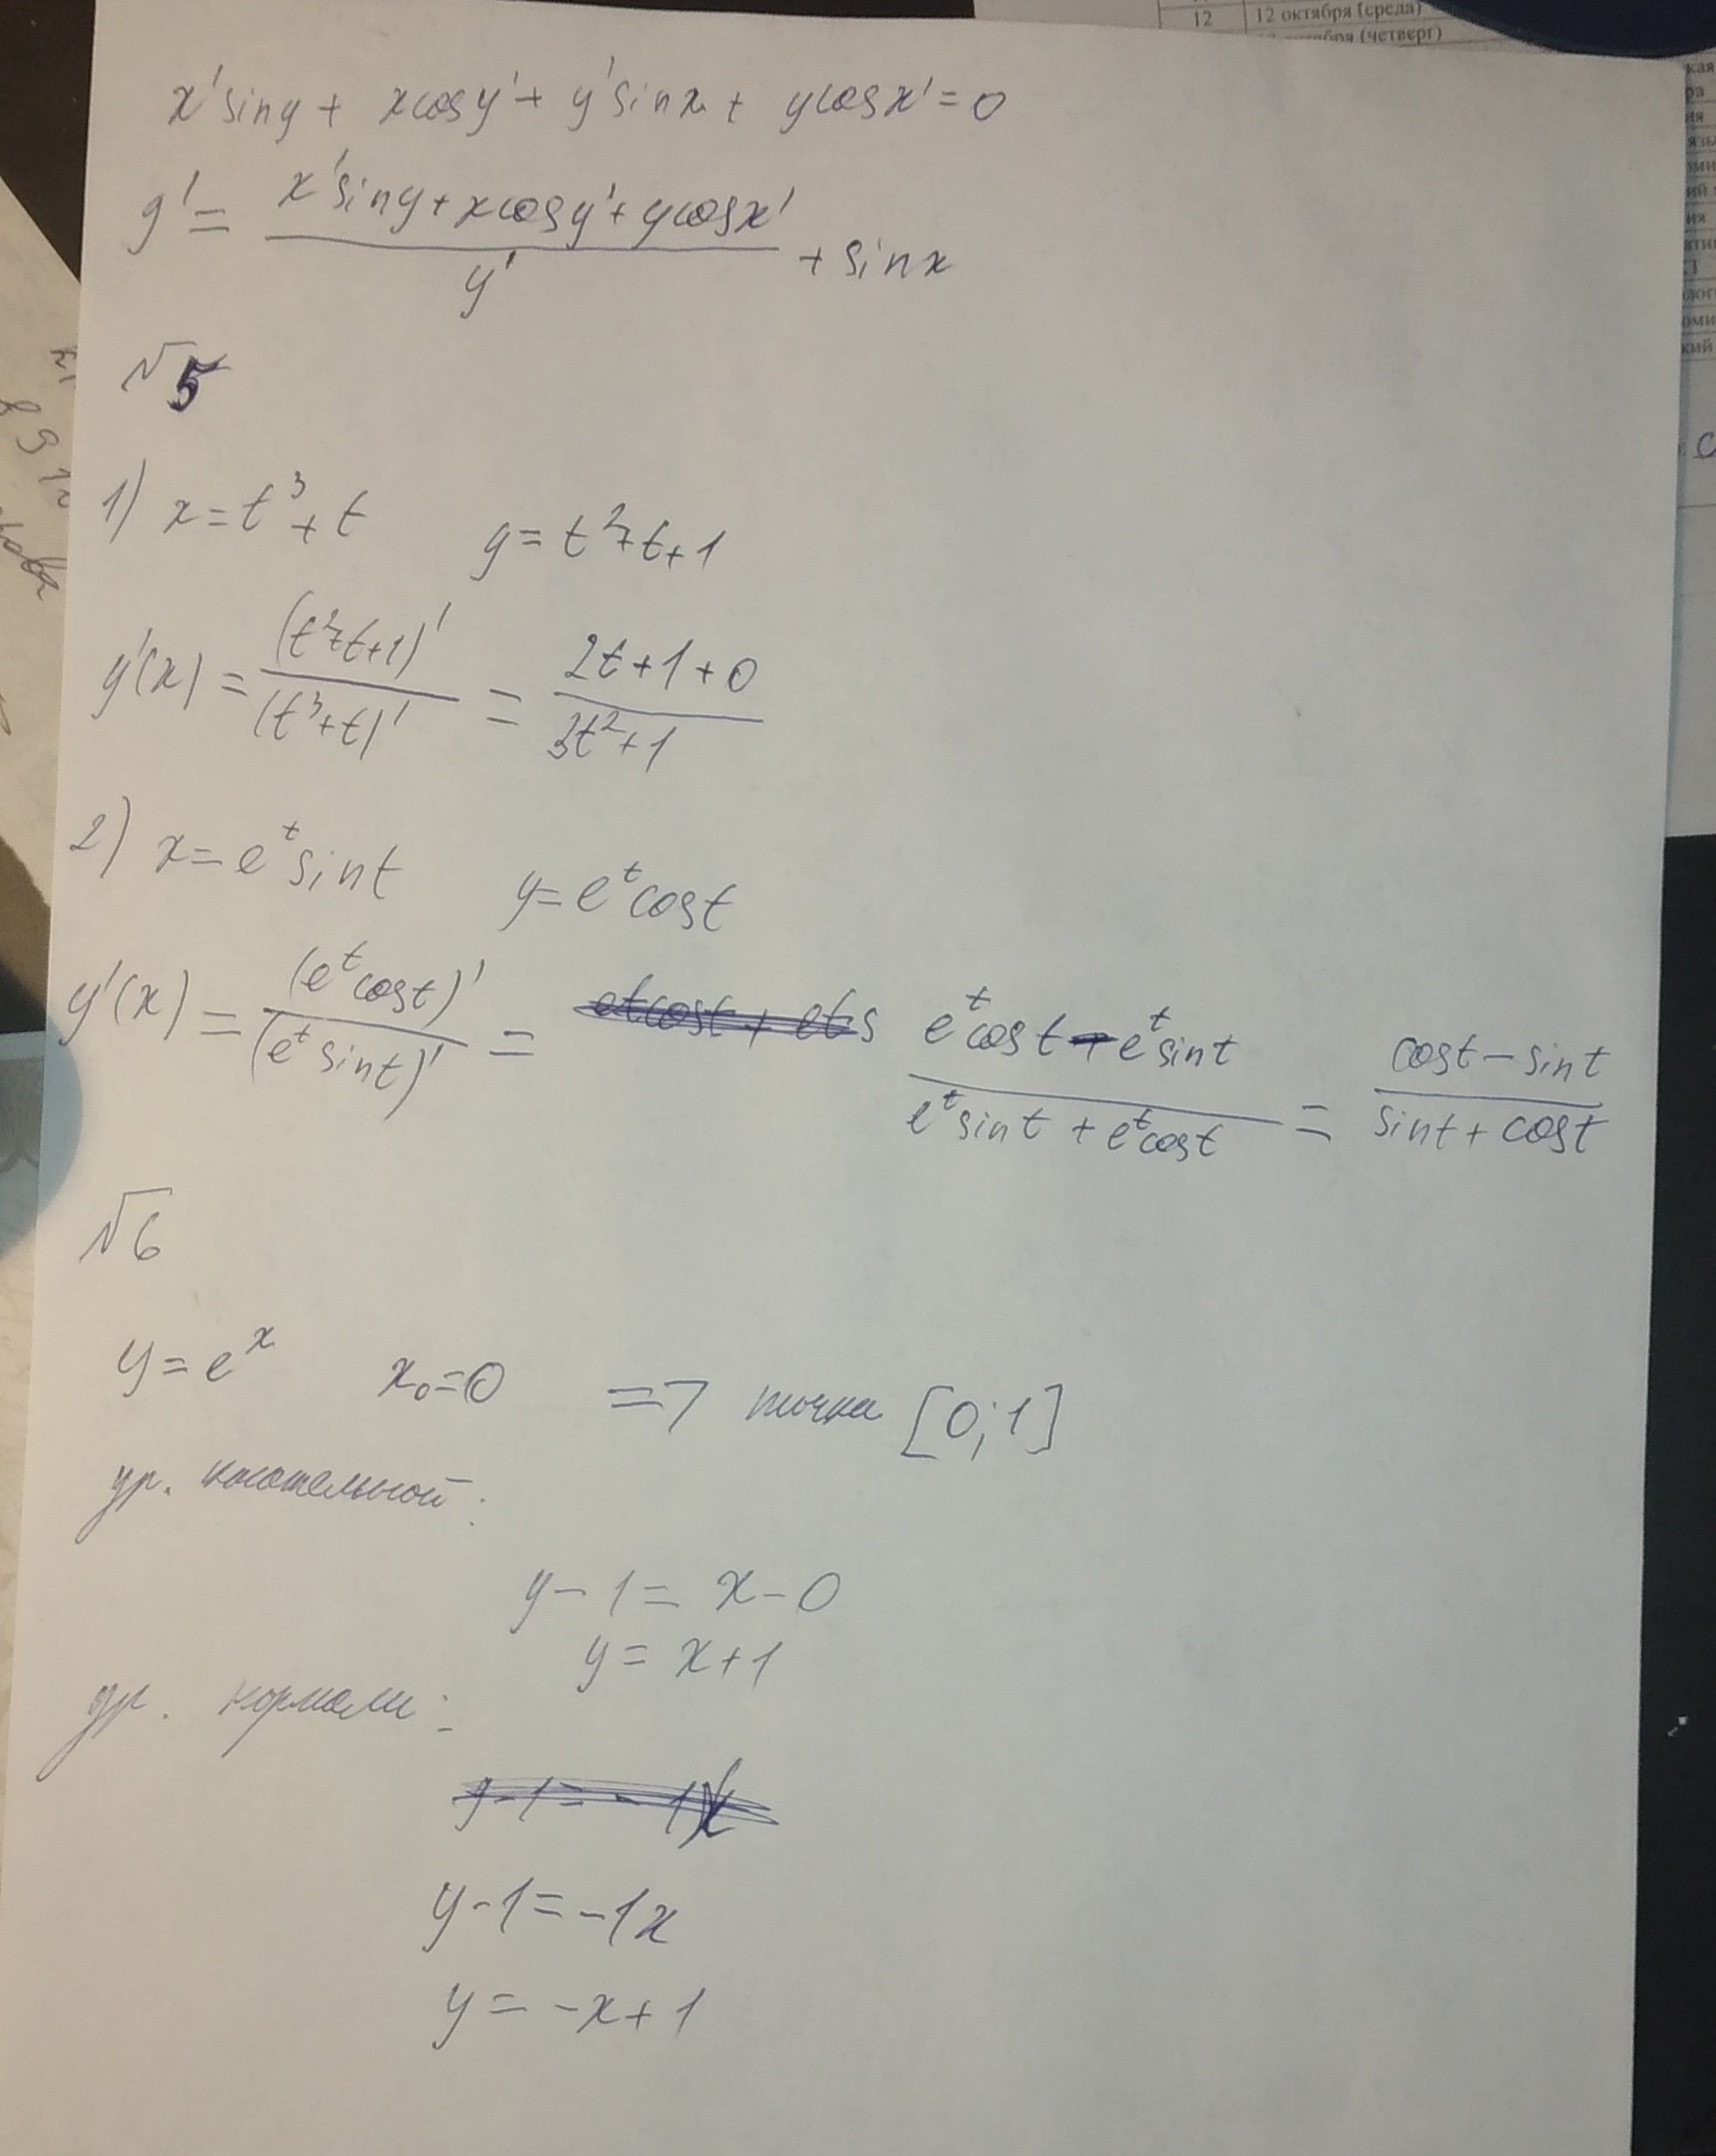 12 12 октября (среда)
октября (четверг)
x' sin y + x cos y' + y' sin x + y cos x' = 0
y' = (x' sin y + x cos y' + y cos x') / y' + sin x
√5
1) x = t³ + t y = t² + t + 1
y'(x) = (t² + t + 1)' / (t³ + t)' = (2t + 1 + 0) / (3t² + 1)
2) x = e^t sin t y = e^t cos t
y'(x) = (e^t cos t)' / (e^t sin t)' = (e^t cos t - e^t sin t) / (e^t sin t + e^t cos t) = (cos t - sin t) / (sin t + cos t)
√6
y = e^x x₀ = 0 => точка [0; 1]
ур. касательной:
y - 1 = x - 0
y = x + 1
ур. нормали:
y - 1 = -1x
y = -x + 1